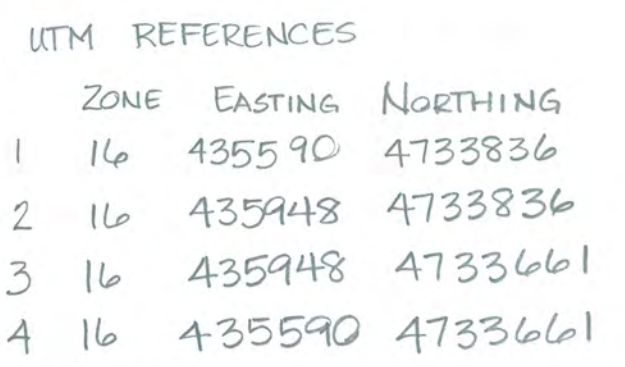 UTM REFERENCES
ZONE EASTING NORTHING
1 16 435590 4733836
2 16 435948 4733836
3 16 435948 4733661
4 16 435590 4733661